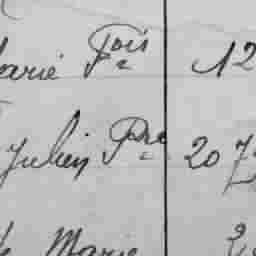 arie Fois 12
Julien Pre 20 7
Marie 2